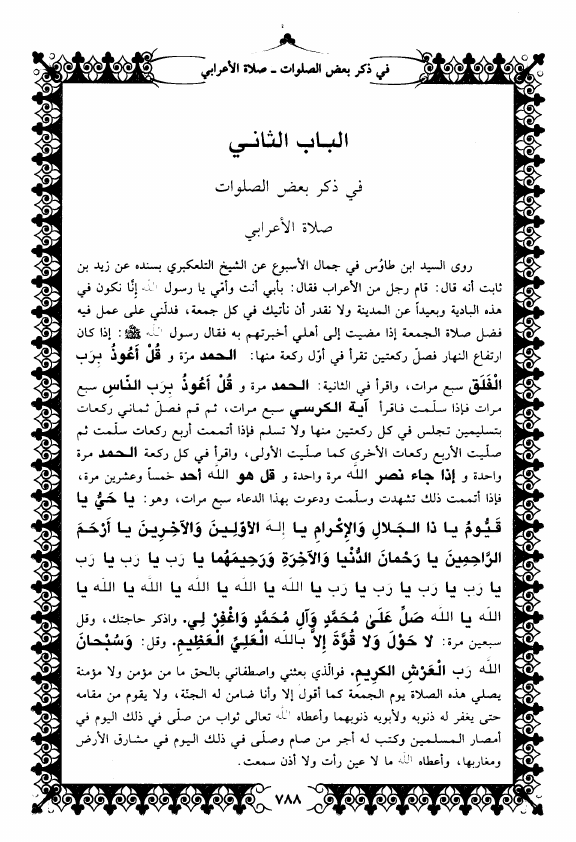 في ذكر بعض الصلوات - صلاة الأعرابي
الباب الثاني
في ذكر بعض الصلوات
صلاة الأعرابي
روى السيد ابن طاوُس في جمال الأسبوع عن الشيخ التلعكبري بسنده عن زيد بن
ثابت أنه قال: قام رجل من الأعراب فقال: بأبي أنت وأمّي يا رسول الله إنّا نكون في
هذه البادية وبعيداً عن المدينة ولا نقدر أن نأتيك في كل جمعة، فدلّني على عمل فيه
فضل صلاة الجمعة إذا مضيت إلى أهلي أخبرتهم به فقال رسول الله ﷺ: إذا كان
ارتفاع النهار فصلّ ركعتين تقرأ في أوّل ركعة منها: الحمد مرّة و قُلْ أَعُوذُ بِرَبِ
الْفَلَقِ سبع مرات، واقرأ في الثانية: الحمد مرة و قُلْ أَعُوذُ بِرَبِ النّاسِ سبع
مرات فإذا سلّمت فاقرأ آية الكرسي سبع مرات، ثم قم فصلّ ثماني ركعات
بتسليمين تجلس في كل ركعتين منها ولا تسلم فإذا أتممت أربع ركعات سلّمت ثم
صلّيت الأربع ركعات الأخرى كما صلّيت الأولى، واقرأ في كل ركعة الحمد مرة
واحدة و إذا جاء نصر الله مرة واحدة و قل هو الله أحد خمساً وعشرين مرة،
فإذا أتممت ذلك تشهدت وسلّمت ودعوت بهذا الدعاء سبع مرات، وهو: يا حَيُّ يا
قَيُّومُ يا ذا الجَلالِ وَالإكْرامِ يا إلهَ الأوّلينَ وَالآخِرِينَ يا أرْحَمَ
الرّاحِمِينَ يا رَحْمانَ الدُّنْيا وَالآخِرَةِ وَرَحِيمَهُما يا رَب يا رَب يا رَب
يا رَب يا رَب يا رَب يا رَب يا الله يا الله يا الله يا الله يا الله يا
الله يا الله صَلِّ عَلَىٰ مُحَمَّدٍ وَآلِ مُحَمَّدٍ وَاغْفِرْ لِي. واذكر حاجتك، وقل
سبعين مرة: لا حَوْلَ وَلا قُوَّةَ إلاّ بِاللهِ الْعَلِيِّ الْعَظِيمِ. وقل: وَسُبْحَانَ
الله رَب الْعَرْشِ الكَرِيمِ. فوالّذي بعثني واصطفاني بالحق ما من مؤمن ولا مؤمنة
يصلي هذه الصلاة يوم الجمعة كما أقول إلا وأنا ضامن له الجنّة، ولا يقوم من مقامه
حتى يغفر له ذنوبه ولأبويه ذنوبهما وأعطاه الله تعالى ثواب من صلّى في ذلك اليوم في
أمصار المسلمين وكتب له أجر من صام وصلّى في ذلك اليوم في مشارق الأرض
ومغاربها، وأعطاه الله ما لا عين رأت ولا أذن سمعت.
٧٨٨